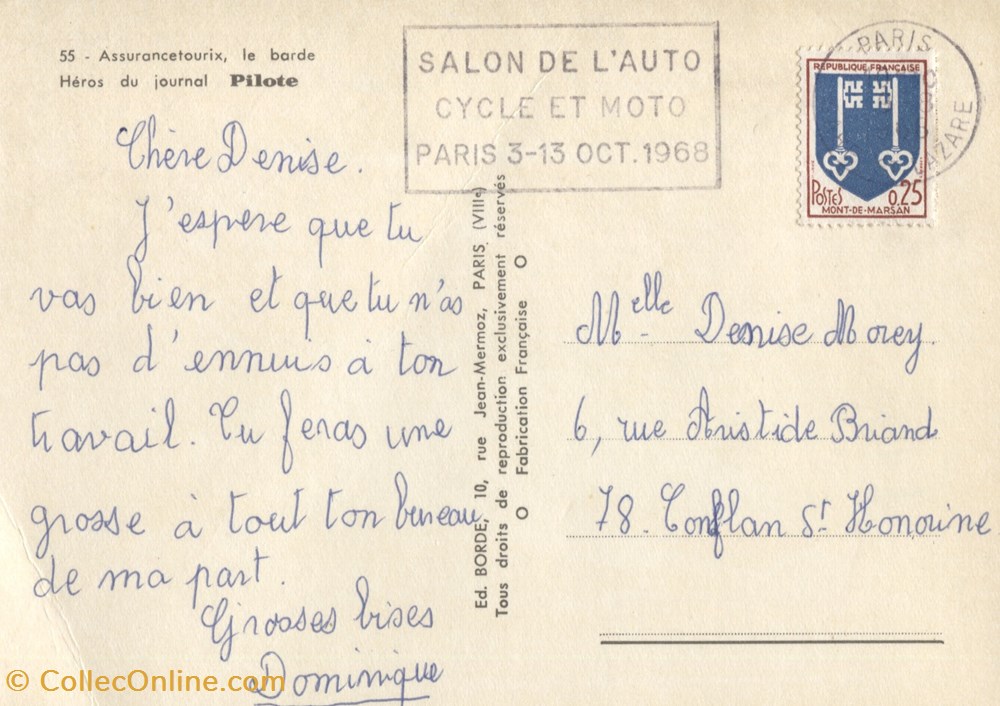 55 - Assurancetourix, le barde
Héros du journal Pilote
SALON DE L'AUTO
CYCLE ET MOTO
PARIS 3-13 OCT. 1968
PARIS
LAZARE
RÉPUBLIQUE FRANÇAISE
POSTES 0,25
MONT-DE-MARSAN
Chère Denise.
J'espere que tu
vas bien et que tu n'as
pas d'ennuis à ton
travail. Tu feras une
grosse à tout ton bureau
de ma part.
Grosses bises
Dominique
Ed. BORDE, 10, rue Jean-Mermoz, PARIS (VIIIe)
Tous droits de reproduction exclusivement réservés
O Fabrication Française O
Melle Denise Morey.
6, rue Aristide Briand
78. Conflan St Honorine
© CollecOnline.com